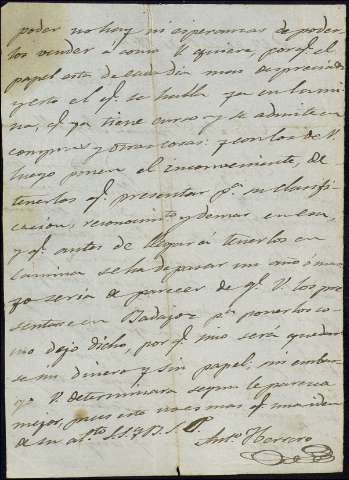 poder no hay ni esperanzas de poder
los vender a como V quiera, porq.e el
papel esta de cada dia mas depreciado
y esto el q.e se halla ya en lami
na, q.e ya tiene curso y se admite en
compras y otras cosas: y con los de V.
luego ponen el inconveniente, de
tenerlos q.e presentar p.a su clasifi
cacion, reconocim.to y demas en esa,
y q.e antes de llegar á tenerlos en
lamina se ha de pasar un año ó mas
yo seria de parecer de q.e V. los pre
sentase en Badajoz p.a ponerlos co
mo dejo dicho, por q.e sino será quedar
se sin dinero y sin papel; sin embar
go V. determinara segun le parezca
mejor, pues esto no es mas q.e una idea
de su af.to S.S.Q.B.S.
Ant.o Herrero